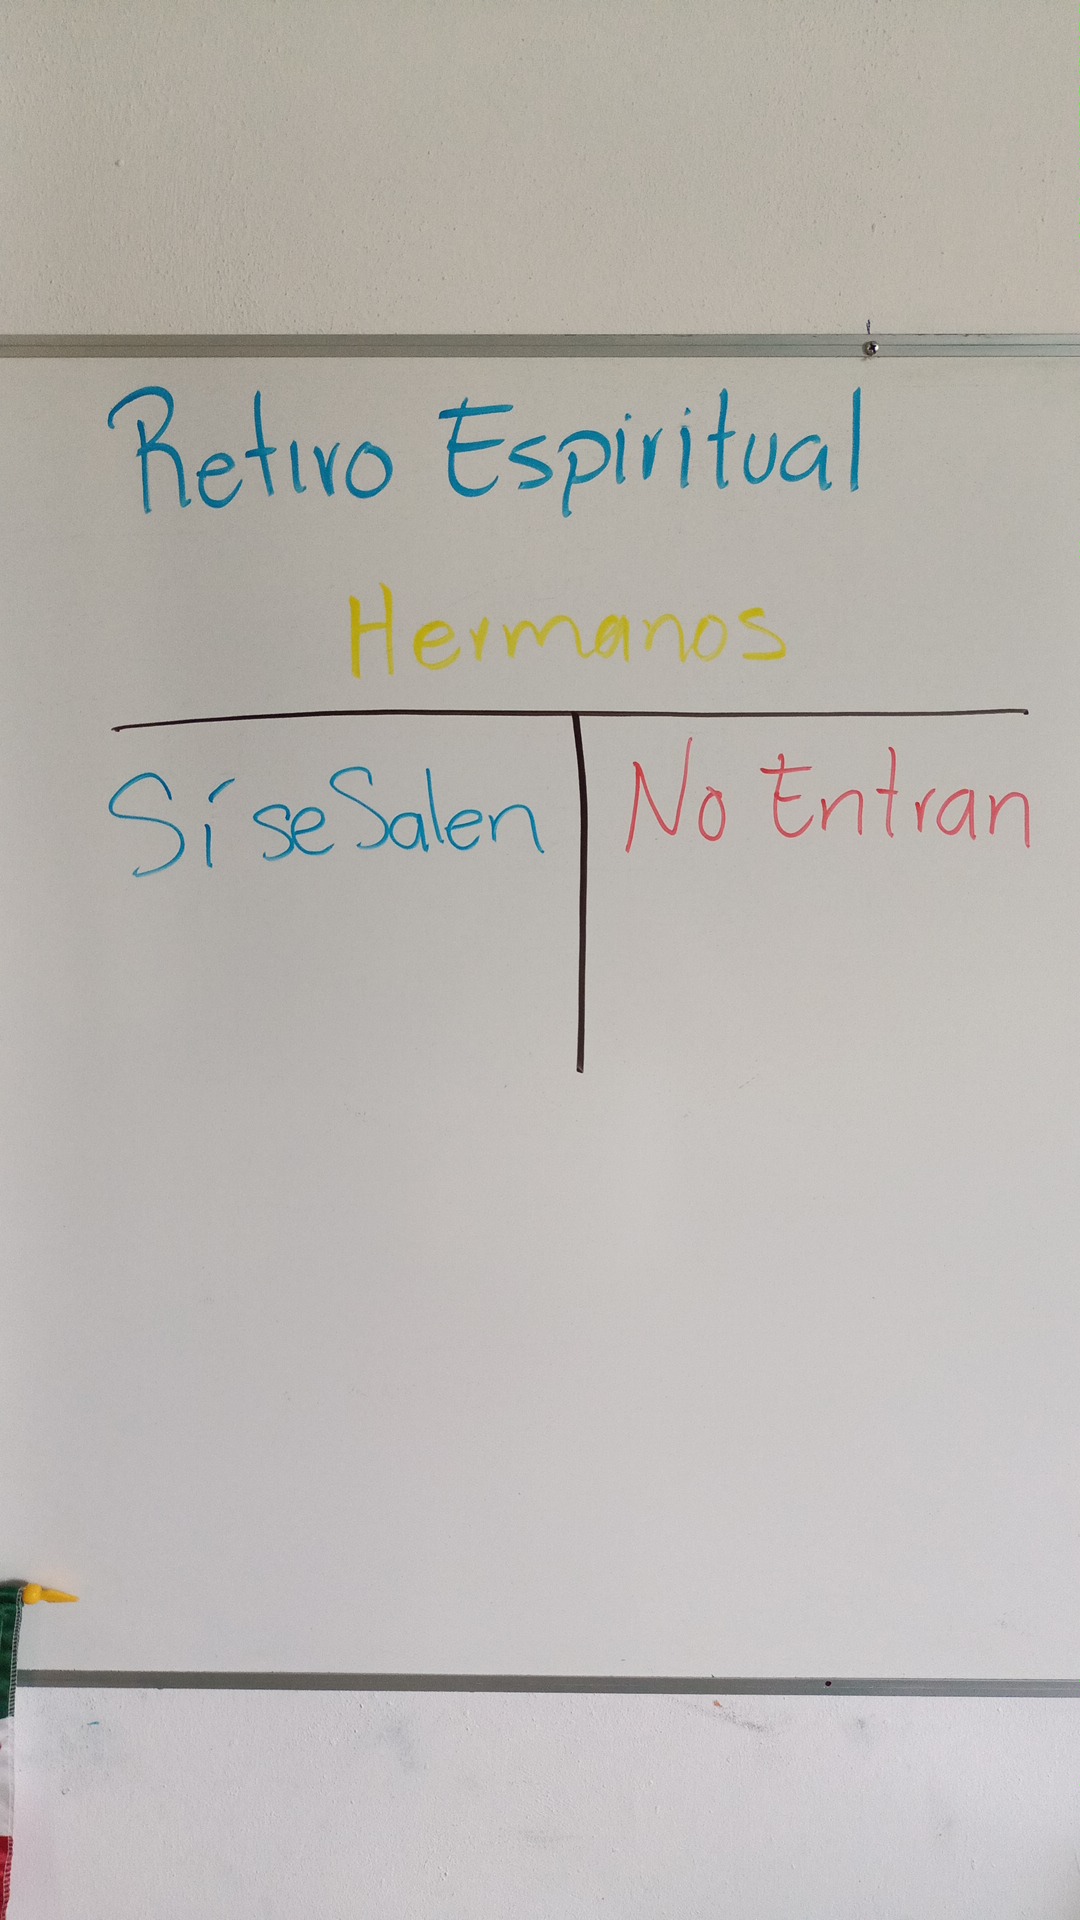 Retiro Espiritual
Hermanos
Sí se Salen
No Entran